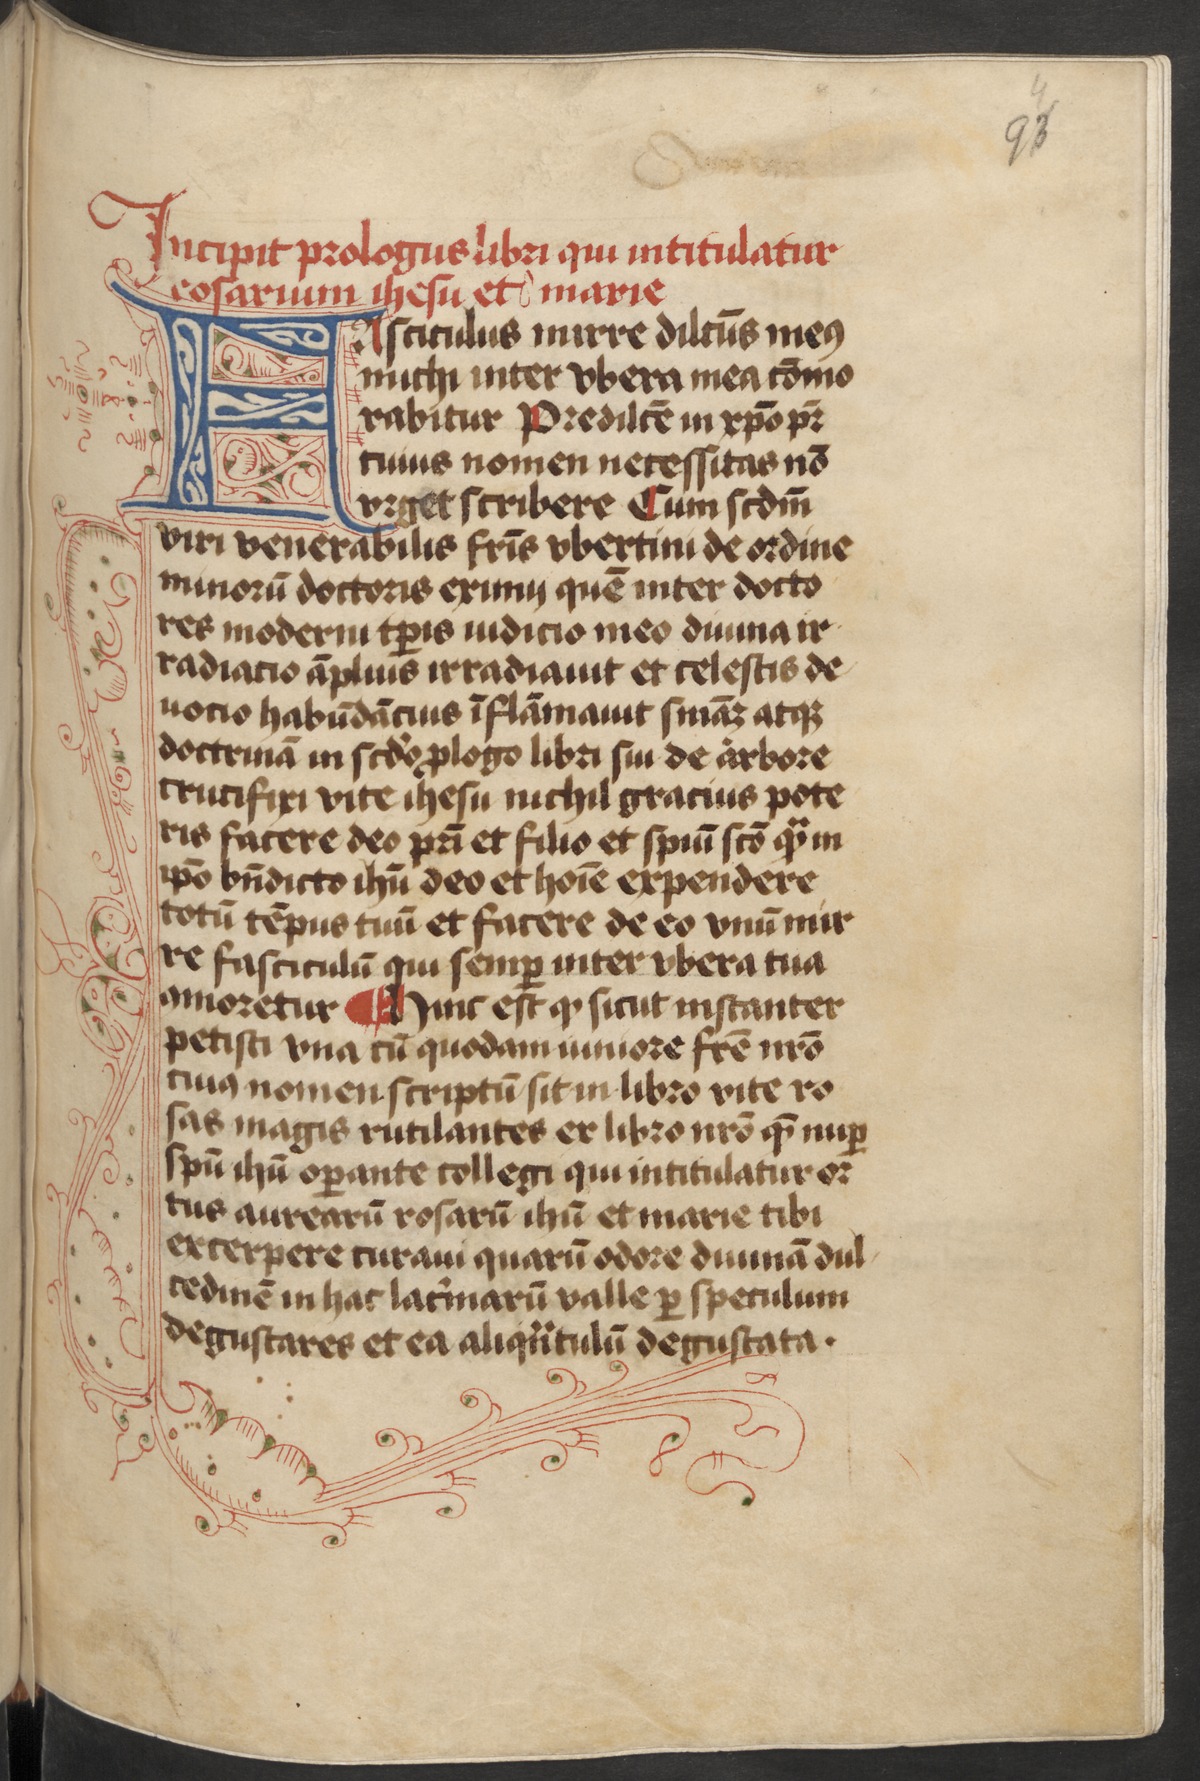 4
93
Incipit prologus libri qui intitulatur
rosarium ihesu et marie
FAsciculus mirre dilcūs meꝰ
michi inter vbera mea cōmo
rabitur Predilcē in xp̄o pr̄
cuius nomen necessitas nō
vrget scribere Cum scdm̄
viri venerabilis fris̄ vbertini de ordine
minorū doctoris eximij quē inter docto
res moderni tp̄is iudicio meo diuina ir
radiacio āplius irradiauit et celestis de
uocio habūdācius īflāmauit smāꝫ atqꝫ
doctrinā in scd̄o ꝓlogo libri sui de arbore
crucifixi vite ihesu nichil gracius pote
ris facere deo pr̄i et filio et spiūi scō qͣm in
ip̄o bn̄dicto ihū deo et hoīe expendere
totū tēpus tuū et facere de eo vnū mir
re fasciculū qui semꝑ inter vbera tua
amoretur Hinc est̄ ꝙ sicut instanter
petisti vna cū quodam iuniore frē nrō
cuiꝰ nomen scriptū sit in libro vite ro
sas magis rutilantes ex libro nrō qm̄ nuꝑ
spū ihū oꝑante collegi qui intitulatur or
tus aurearū rosarū ihū et marie tibi
excerpere curaui quarū odore diuinā dul
cedinē in hac lacrimarū valle ꝑ speculum
degustares et ea aliqͣntulū degustata ·